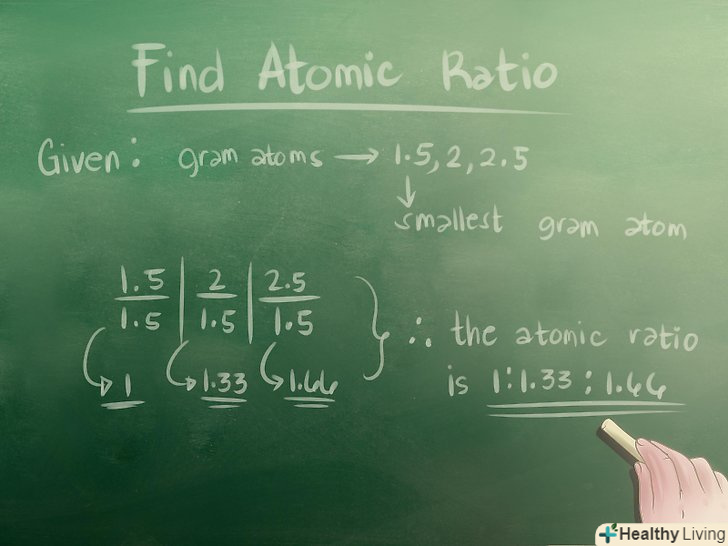 Find Atomic Ratio
Given: gram atoms → 1.5, 2, 2.5
↓
smallest gram atom
1.5 | 2 | 2.5
1.5 | 1.5 | 1.5
1 1.33 1.66
∴ the atomic ratio
is 1:1.33:1.66
Healthy Living